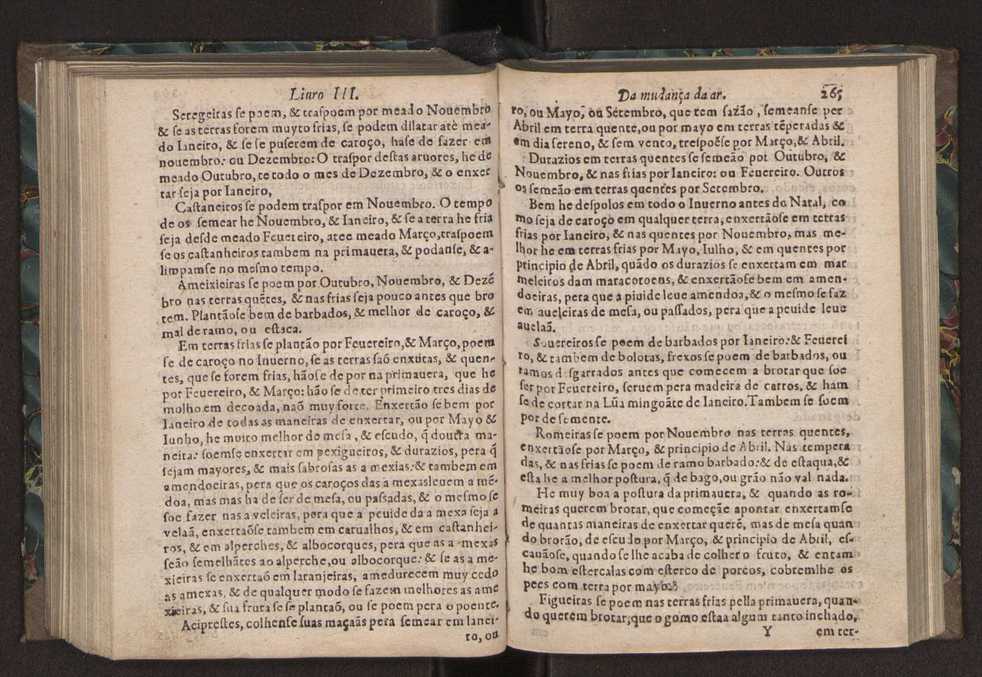 Liuro III.
Seregeiras se poem, & traspoem por meado Nouembro
& se as terras forem muyto frias, se podem dilatar atè mea-
do Ianeiro, & se se puserem de caroço, hase de fazer em
nouembro: ou Dezembro: O traspor destas aruores, he de
meado Outubro, te todo o mes de Dezembro, & o enxer
tar seja por Ianeiro,
Castaneiros se podem traspor em Nouembro. O tempo
de os semear he Nouembro, & Ianeiro, & se a terra he fria
seja desde meado Feuereiro, atee meado Março, traspoem
se os castanheiros tambem na primauera, & podanse, & a-
limpamse no mesmo tempo.
Ameixieiras se poem por Outubro, Nouembro, & Dezẽ
bro nas terras quẽtes, & nas frias seja pouco antes que bro
tem. Plantãose bem de barbados, & melhor de caroço, &
mal de ramo, ou estaca.
Em terras frias se plantão por Feuereiro, & Março, poem
se de caroço no Inuerno, se as terras saõ enxutas, & quen-
tes, que se forem frias, hãose de por na primauera, que he
por Feuereiro, & Março: hão se de ter primeiro tres dias de
molho em decoada, naõ muy forte. Enxertão se bem por
Ianeiro de todas as maneiras de enxertar, ou por Mayo &
Iunho, he muito melhor de mesa, & escudo, q̃ doutra ma-
neira: soemse enxertar em pexigueiros, & durazios, pera q̃
sejam mayores, & mais sabrosas as amexias: & tambem em
amendoeiras, pera que os caroços das amexas leuem amẽ-
doa, mas mas ha de ser de mesa, ou passadas, & o mesmo se
soe fazer nas aveleiras, pera que a peuide da amexa seja a
velaã, enxertaõse tambem em carualhos, & em castanhei-
ros, & em alperches, & albocorques, pera que as amexas
seão semelhãtes ao alperche, ou albocorque: & se as a me-
xieiras se enxertaõ em laranjeiras, amedurecem muy cedo
as amexas, & de qualquer modo se fazem melhores as ame
xieiras, & sua fruta se se plantaõ, ou se poem pera o poente.
Aciprestes, colhense suas maçaãs pera semear em Ianei-
ro, ou
Da mudança da ar. 265
ro, ou Mayo, ou Setembro, que tem sazão, semeanse per
Abril em terra quente, ou por mayo em terras tẽperadas &
em dia sereno, & sem vento, trespoẽse por Março, & Abril.
Durazios em terras quentes se semeão por Outubro, &
Nouembro, & nas frias por Ianeiro: ou Feuereiro. Outros
os semeão em terras quentes por Setembro.
Bem he despolos em todo o Inuerno antes do Natal, co
mo seja de caroço em qualquer terra, enxertãose em terras
frias por Ianeiro, & nas quentes por Nouembro, mas me-
lhor he em terras frias por Mayo, Iulho, & em quentes por
principio de Abril, quãdo os durazios se enxertam em mar
meleiros dam maracotoens, & enxertãose bem em amen-
doeiras, pera que a piuide leue amendoa, & o mesmo se faz
em aueleiras de mesa, ou passados, pera que a peuide leue
auelaã.
Souereiros se poem de barbados por Ianeiro: & Feuerei
ro, & tambem de bolotas, frexos se poem de barbados, ou
ramos desgarrados antes que comecem a brotar que soe
ser por Feuereiro, seruem pera madeira de carros, & ham
se de cortar na Lũa mingoãte de Ianeiro. Tambem se soem
por de semente.
Romeiras se poem por Nouembro nas terras quentes,
enxertãose por Março, & principio de Abril. Nas tempera
das, & nas frias se poem de ramo barbado: & de estaqua, &
esta he a melhor postura, q̃ de bago, ou grão não val nada.
He muy boa a postura da primauera, & quando as ro-
meiras querem brotar, que começãe apontar enxertamse
de quantas maneiras de enxertar querẽ, mas de mesa quan
do brotão, de escudo por Março, & principio de Abril, es-
cauãose, quando se lhe acaba de colher o fruto, & entam
he bom estercalas com esterco de porcos, cobremlhe os
pees com terra por mayo.
Figueiras se poem nas terras frias pella primauera, quan-
do querem brotar, que o gomo estaa algum tanto inchado,
Y em ter-